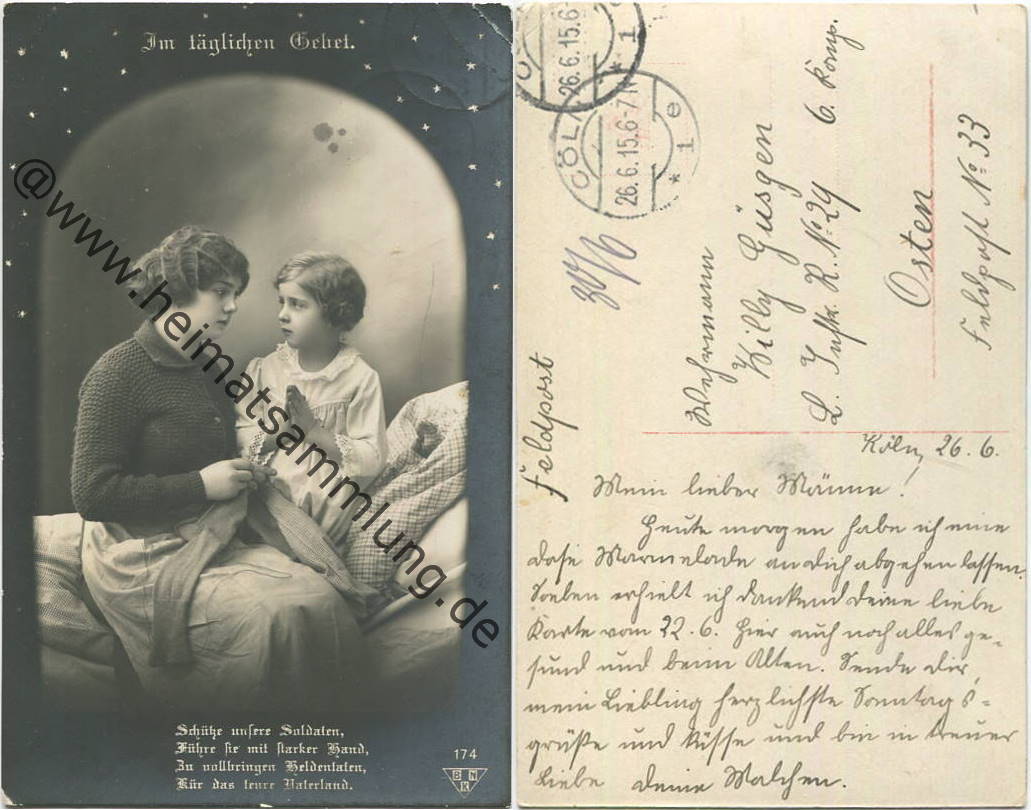 Im täglichen Gebet.
@www.heimatsammlung.de
Schütze unsere Soldaten,
Führe sie mit starker Hand,
Zu vollbringen Heldentaten,
Für das teure Vaterland.
174
BNK
CÖLN
26.6.15.6-
1
CÖLN
26.6.15.6-7N
* 1 e
30/6
Feldpost
Wehrmann
Willy Güsgen
L. Inftr. R. No 29 6. Komp.
Osten
Feldpost No 33
Köln, 26.6.
Mein lieber Männe!
Heute morgen habe ich eine
Dose Marmelade an dich abgehen lassen
Soeben erhielt ich dankend deine liebe
Karte vom 22.6. Hier auch noch alles ge-
sund und beim Alten. Sende dir,
mein Liebling herzlichste Sonntags-
grüße und Küsse und bin in treuer
Liebe deine Malchen.